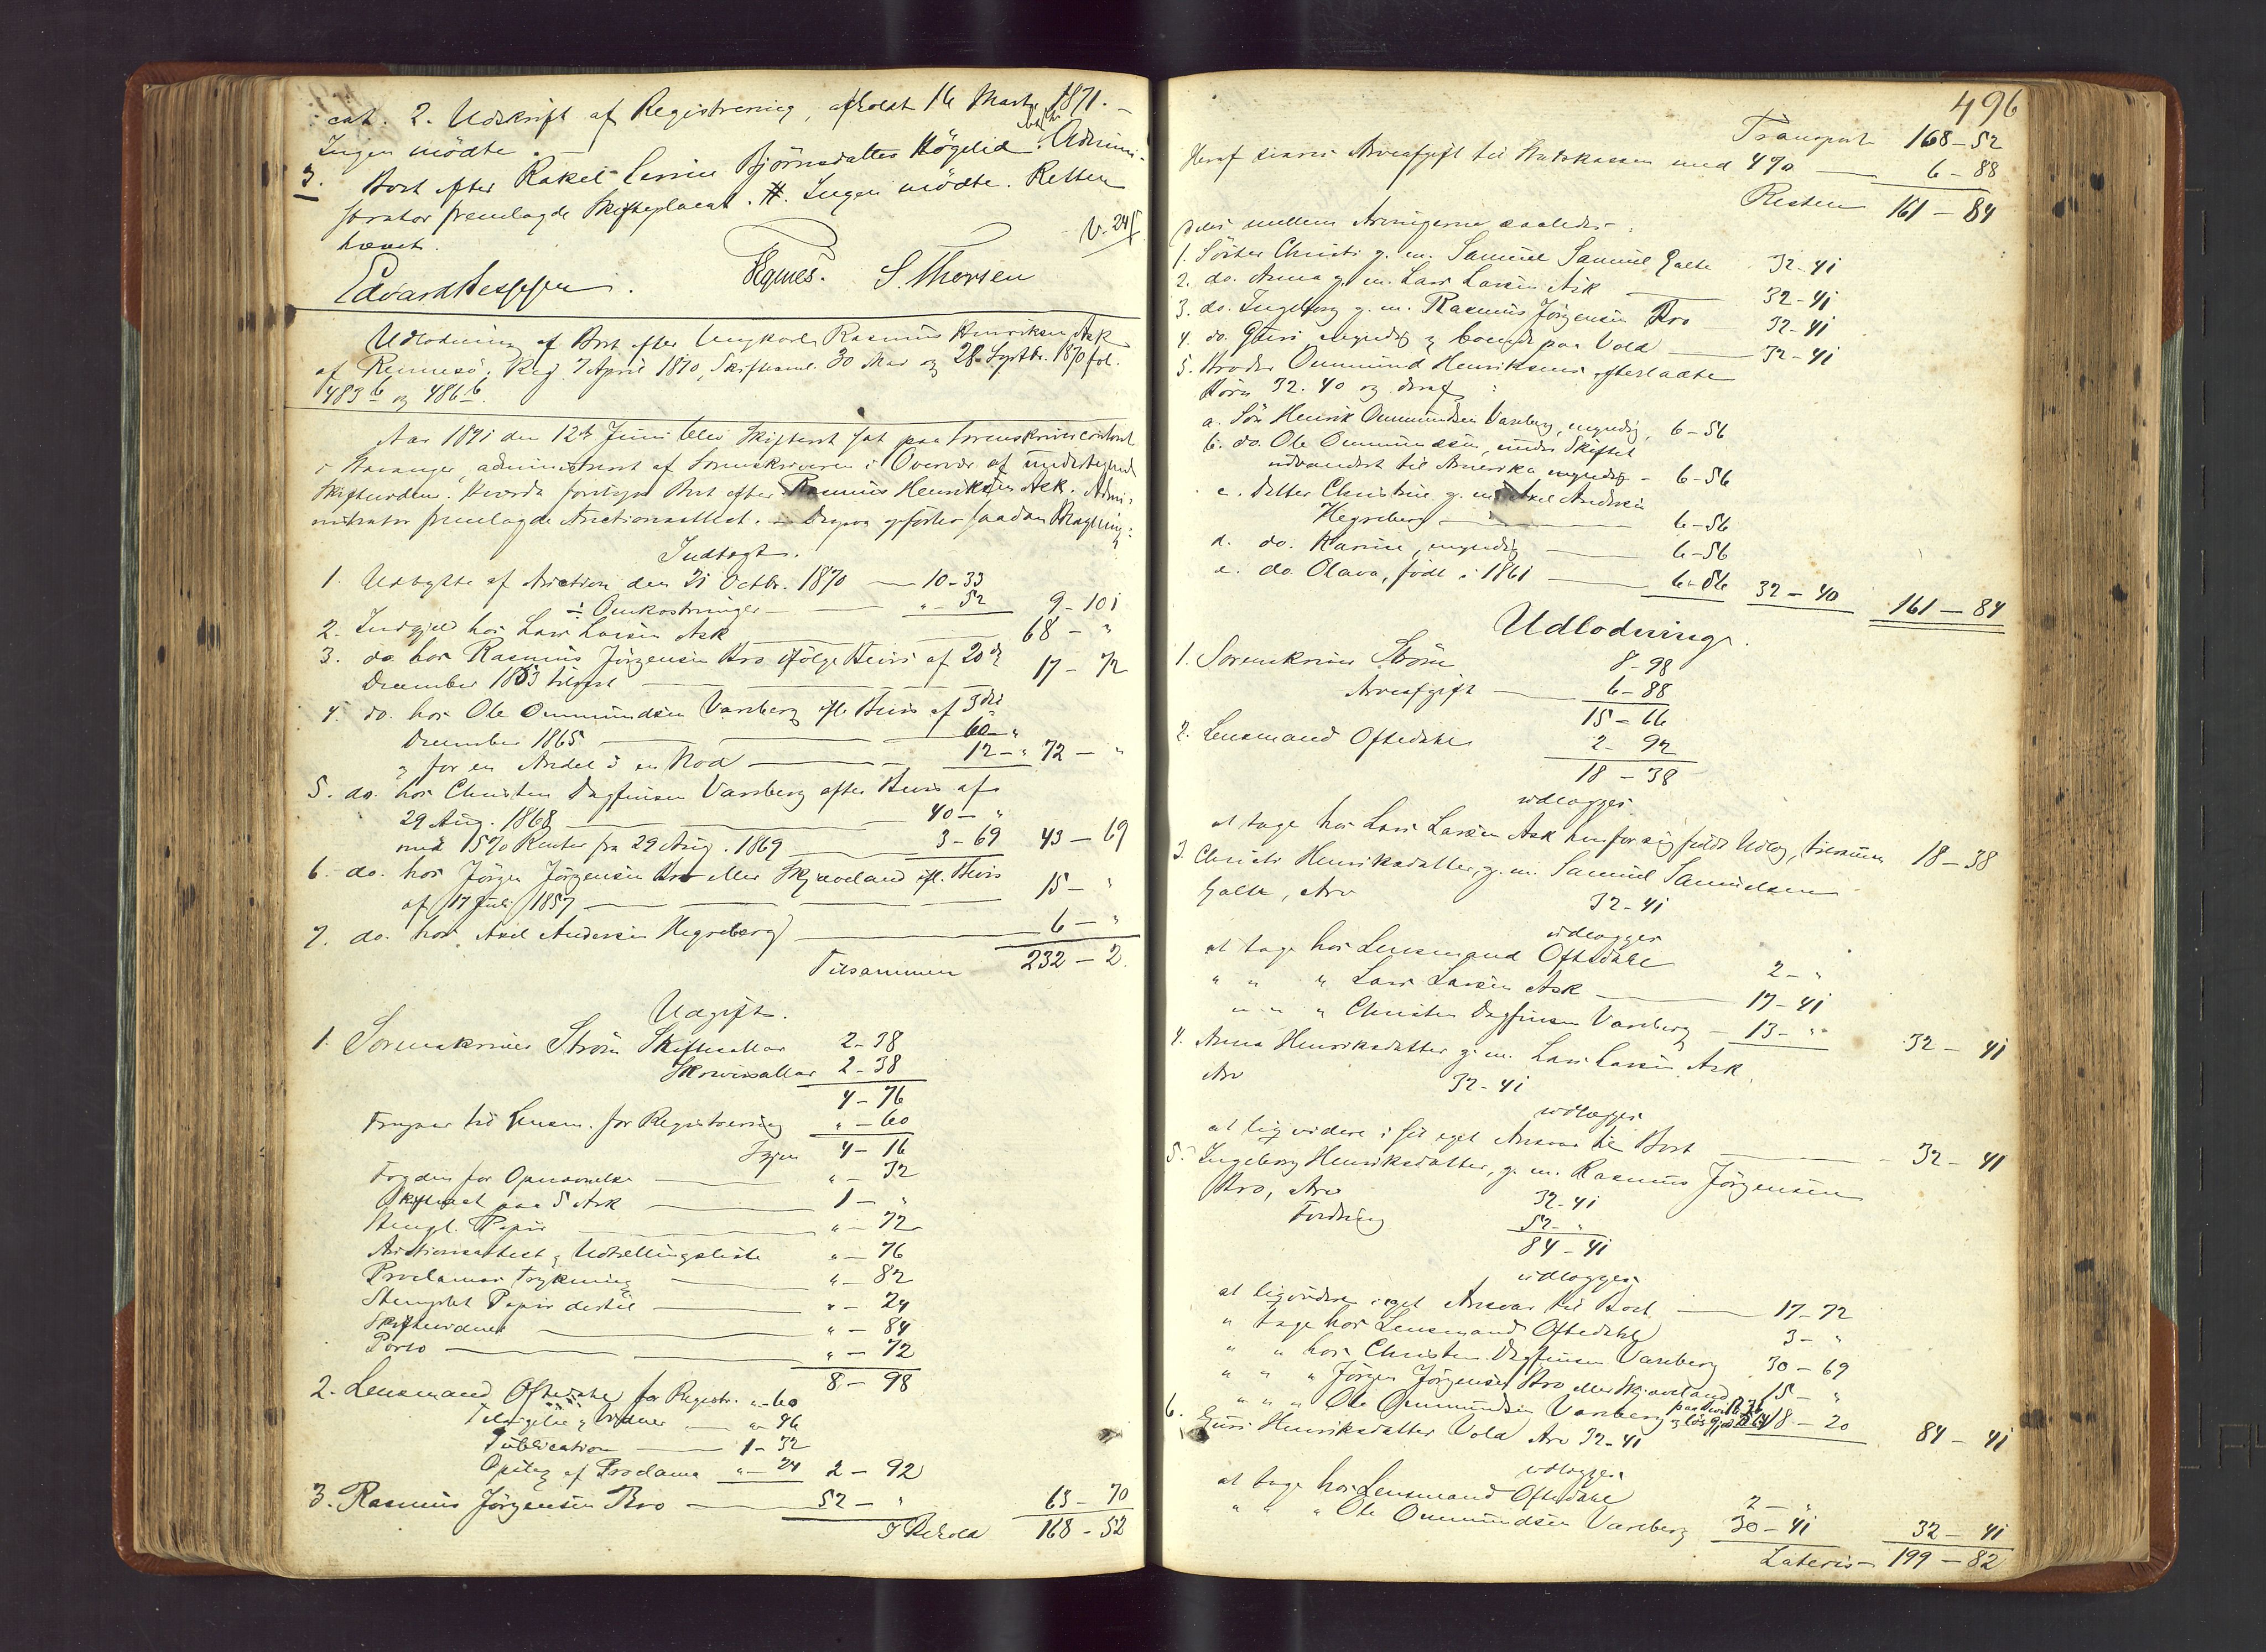 cat. 2. Udskrift af Registrering, afholdt 16 Marts 1871. –
Ingen mödte. –
3. Boet efter Rakel Serine Björnsdatter Högelid. Admini-
strator fremlagde Skifteplacat. #. Ingen mödte. Retten
hævet.
Edvard Jespersen. Egenes. S. Thorsen
Udlodning af Boet efter Ungkarl Rasmus Henriksen Ask
af Rennesö. Reg. 7 April 1870, Skiftesaml. 30 Mai og 28 Septbr. 1870 fol.
483 b og 486 b.
Aar 1871 den 12te Juni blev Skifteret sat paa Sorenskrivercontoret
i Stavanger, administreret af Sorenskriveren i Overvær af undertegnede
Skiftevidner. Hvorda foretoges Boet efter Rasmus Henriksen Ask. Admi-
nistrator fremlagde Auctionsattest. – Derpaa opförtes saadan Beregning:
Indtægt.
1. Udbytte af Auction den 21 Octbr. 1870 – 10-33
÷ Omkostninger – " - 52 9 - 101
2. Indgjeld hos Lars Larsen Ask 68 - "
3. do. hos Rasmus Jörgensen Bro ifölge Bevis af 20de
December 1863 tilgode 17 - 72
4. do. hos Ole Ommundsen Varsberg ifl. Bevis af 3die
December 1865 60 - "
og for en Andel i en Nod 12 - " 72 - "
5. do. hos Christen Dagfinsen Varsberg efter Bevis af
29 Aug. 1868 40 - "
med 5% Renter fra 29 Aug. 1869 3 - 69 43 - 69
6. do. hos Jörgen Jörgensen Bro eller Skjæveland ifl. Bevis
af 17 Juli 1857 15 - "
7. do. hos Axel Andersen Hegreberg 6 - "
Tilsammen 232 - 2
Udgift.
1. Sorenskriver Ström Skiftesallar 2-38
Skriversallar 2-38
4-76
Fragaar til Lensm. for Registrering " - 60
Igjen 4 - 16
Fogden for Opnævnelse " - 32
Skifteact paa 5 Ark 1 - "
Stempl. Papir " - 72
Auctionsattest og Udtællingsliste " - 76
Proclamas Trykning " - 82
Stemplet Papir dertil " - 24
Skiftevidner " - 84
Porto " - 72
8 - 98
2. Lensmand Oftedahl for Registr. " - 60
Tilsigelse og Vidner " - 96
Publication 1 - 32
Opslag af Proclama " - 24 2 - 92
3. Rasmus Jörgensen Bro 52 - " 63 - 70
I Behold 168 - 52
496
Transport 168 - 52
Heraf svares Arveafgift til Statskassen med 4% 6 - 88
Resten 161 - 84
deles mellem Arvingerne saaledes:
1. Söster Christi g. m. Samuel Samuels. Galta 32-41
2. do. Anna g. m. Lars Larsen Ask 32-41
3. do. Ingeborg g. m. Rasmus Jörgensen Bro 32-41
4. do. Guri, myndig og boende paa Vold 32-41
5. Broder Ommund Henriksens efterladte
Börn 32. 40 og deraf:
a. Sön Henrik Ommundsen Varsberg, myndig, 6-56
b. do. Ole Ommundsen, under Skiftet
udvandret til Amerika myndig – 6-56
c. Datter Christine g. m. Axel Andersen
Hegreberg 6-56
d. do. Karine, myndig 6-56
e. do. Olava, födt i 1861 6-56 32 - 40 161 - 84
Udlodning.
1. Sorenskriver Ström 8-98
Arveafgift 6-88
15 - 66
2. Lensmand Oftedahl 2 - 92
18 - 38
udlægges
at tage hos Lars Larsen Ask herfor sig fuldt Udlæg, tilsammen 18 - 38
3. Christi Henriksdatter, g. m. Samuel Samuelsen
Galta, Arv 32-41
udlægges
at tage hos Lensmand Oftedahl 2 - "
" " " Lars Larsen Ask 17-41
" " " Christen Dagfinsen Varsberg – 13 - " 32 - 41
4. Anna Henriksdatter g. m. Lars Larsen Ask
Arv 32-41
udlægges
at liqvidere i sit eget Ansvar til Boet 32 - 41
5. Ingeborg Henriksdatter, g. m. Rasmus Jörgensen
Bro, Arv 32-41
Fordring 52 - "
84 - 41
udlægges
at liqvidere i eget Ansvar til Boet 17-72
" tage hos Lensmand Oftedahl 3 - "
" " hos Christen Dagfinsen Varsberg 30 - 69
" " " Jörgen Jörgensen Bro eller Skjæveland 15 - "
" " " Ole Ommundsen Varsberg 18 - 20 84 - 41
6. Guri Henriksdatter Vold Arv 32-41
udlægges
at tage hos Lensmand Oftedahl 2 - "
" " " Ole Ommundsen Varsberg 30 - 41 32 - 41
Lateris – 199 - 82